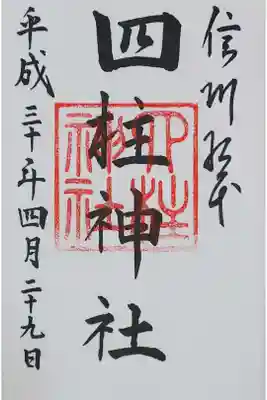 信州松本
四柱神社
平成三十年四月二十九日
四柱神社